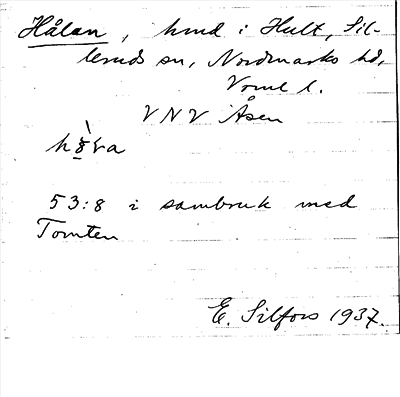 Hålan, hmd i Hult, Sil-
leruds sn, Nordmarks hd,
Vrml l.
VNV Åsen
53:8 i sambruk med
Tomten
E. Silfors 1937.